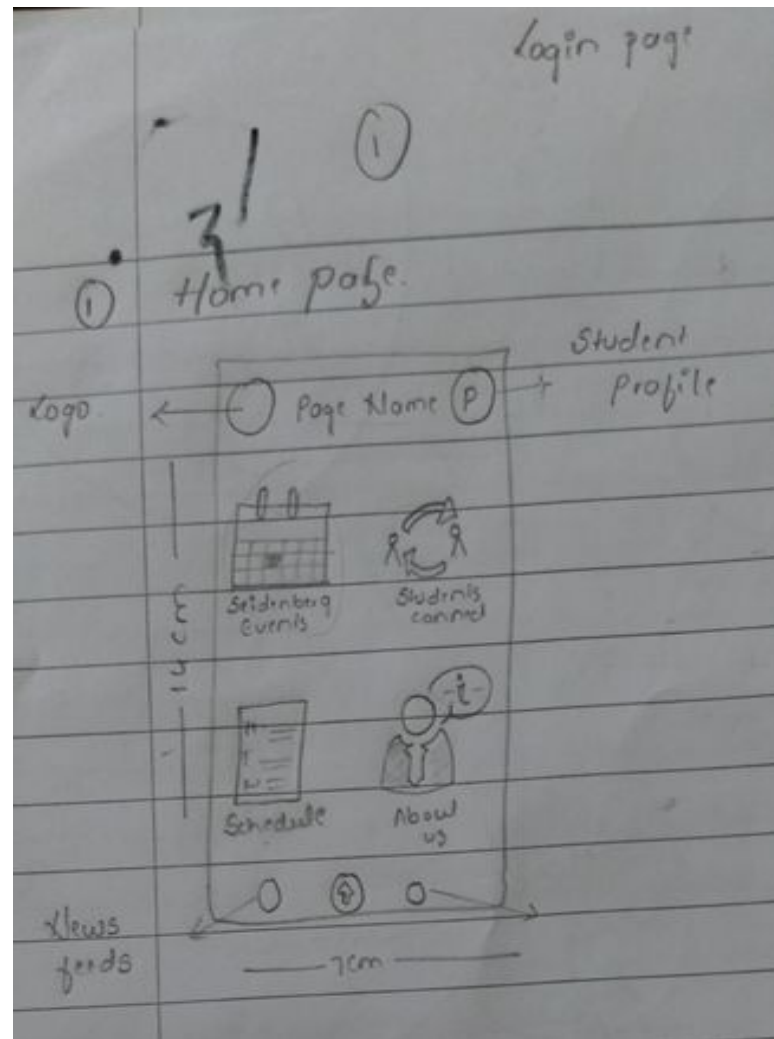 Login page
1
1 Home page.
Student
Profile
Logo
Page Name P
14 cm
Seidenberg
Events
Students
connect
i
M
T
W
Schedule
About
us
News
feeds
7cm